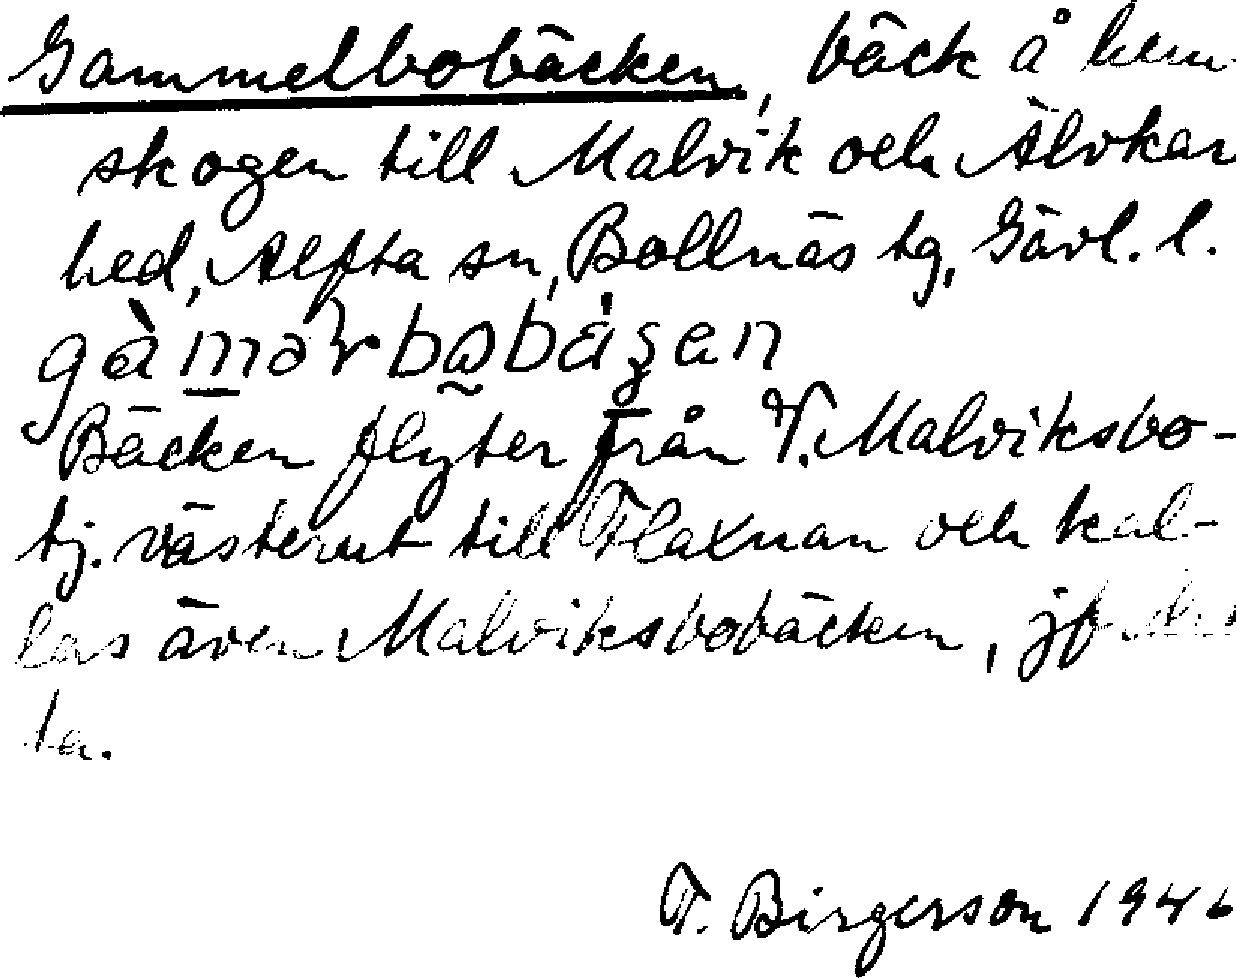 Gammelbobäcken, bäck å hem-
skogen till Malvik och Älvkar
hed, Alfta sn, Bollnäs tg, Gävl. l.
Bäcken flyter från V. Malviksbo-
tj. västerut till Flaxnan och kal-
las även Malviksbobäcken, jfr det
ta.
T. Birgerson 1946